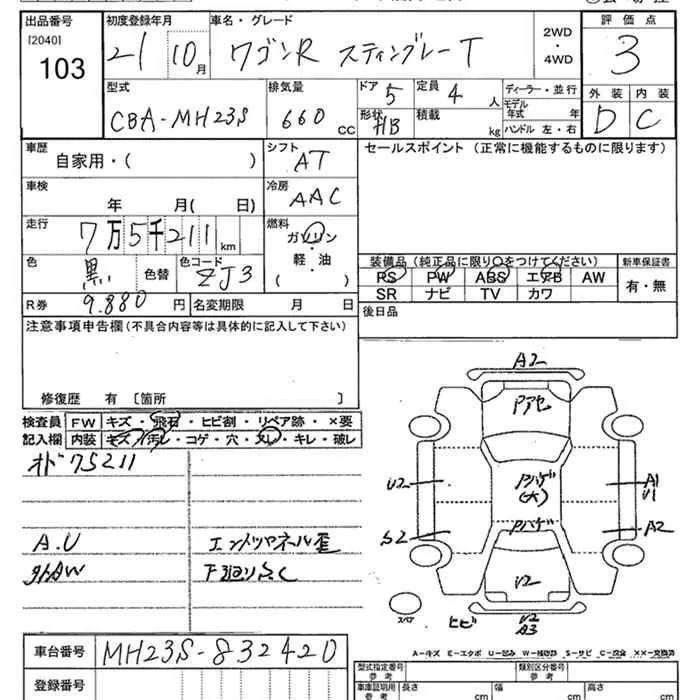 出品番号 初度登録年月 車名・グレード 評価点
[2040] 103 21 10月 ワゴンR スティングレーT 2WD・4WD 3
型式 排気量 ドア 定員 ディーラー・並行 外装 内装
CBA-MH23S 660cc 5 4人 モデル年式 年 D C
形状 HB 積載 kg ハンドル 左・右
車歴 シフト セールスポイント(正常に機能するものに限ります)
自家用・( ) AT
車検 冷房
年 月( 日) AAC
走行 燃料
7万5千211km ガソリン・軽油・( )
色 色コード 装備品(純正品に限り○をつけてください) 新車保証書
黒 色替 ZJ3 PS PW ABS エアB AW 有・無
SR ナビ TV カワ
R券 9.880円 名変期限 月 日 後日品
注意事項申告欄(不具合内容等は具体的に記入して下さい)
修復歴 有 [箇所 ]
検査員 FW キズ・飛石・ヒビ割・リペア跡・×要
記入欄 内装 キズ・汚レ・コゲ・穴・スレ・キレ・破レ
オド75211
A.U エンドツパネル歪
外AW 下廻りさく
A2
Pアセ
U2 Pハゲ(大) A1 U1
S2 Pハゲ A2
U2
スペア ヒビ U2 A3
A-キズ E-エクボ U-凹み W-補修跡 S-サビ C-腐食 XX-交換済
車台番号 MH23S-832420
登録番号
型式指定番号 参考 類別区分番号 参考
車庫証明用 参考 長さ cm 幅 cm 高さ cm